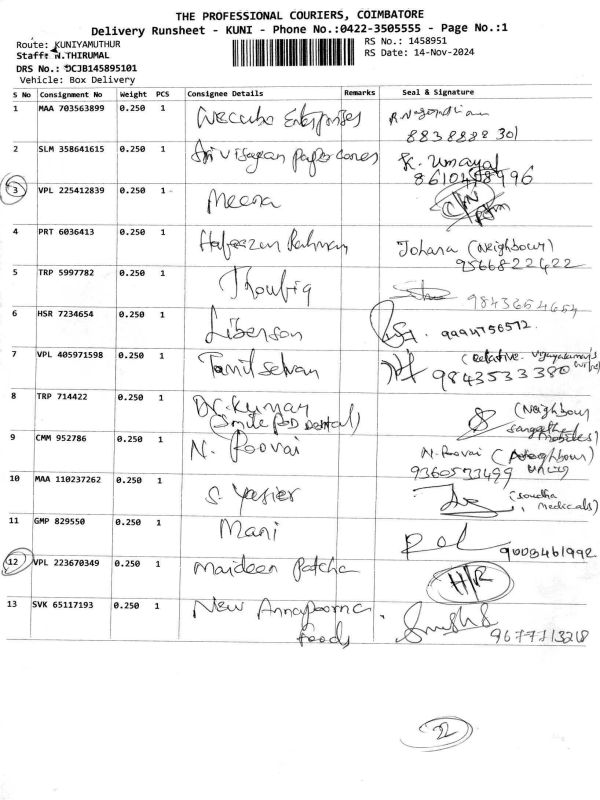 THE PROFESSIONAL COURIERS, COIMBATORE
Delivery Runsheet - KUNI - Phone No.:0422-3505555 - Page No.:1
Route: KUNIYAMUTHUR
RS No.: 1458951
Staff: N.THIRUMAL
RS Date: 14-Nov-2024
DRS No.: DCJB145895101
Vehicle: Box Delivery
S No Consignment No Weight PCS Consignee Details Remarks Seal & Signature
1 MAA 703563899 0.250 1 Enterprises
8838888301
2 SLM 358641615 0.250 1 Sri Vijayan paper cones K. Umayal
3 VPL 225412839 0.250 1 Meena
4 PRT 6036413 0.250 1 Hafeezur Rahman Johara (Neighbour)
9566822422
5 TRP 5997782 0.250 1 Thoufiq 9843654654
6 HSR 7234654 0.250 1 Liberson 9994756572
7 VPL 405971598 0.250 1 Tamilselvan (Relative
9843533380
8 TRP 714422 0.250 1 Dr. Kumar (Neighbour
(Smile Dental) mobiles)
9 CMM 952786 0.250 1 N. Poovai N. Poovai (
9360573499
10 MAA 110237262 0.250 1 S. Yasier (Soudha
medicals)
11 GMP 829550 0.250 1 Mani
9003461992
12 VPL 223670349 0.250 1 Maideen Patcha H/R
13 SVK 65117193 0.250 1 New Annapoorna
Foods 9677713218
22